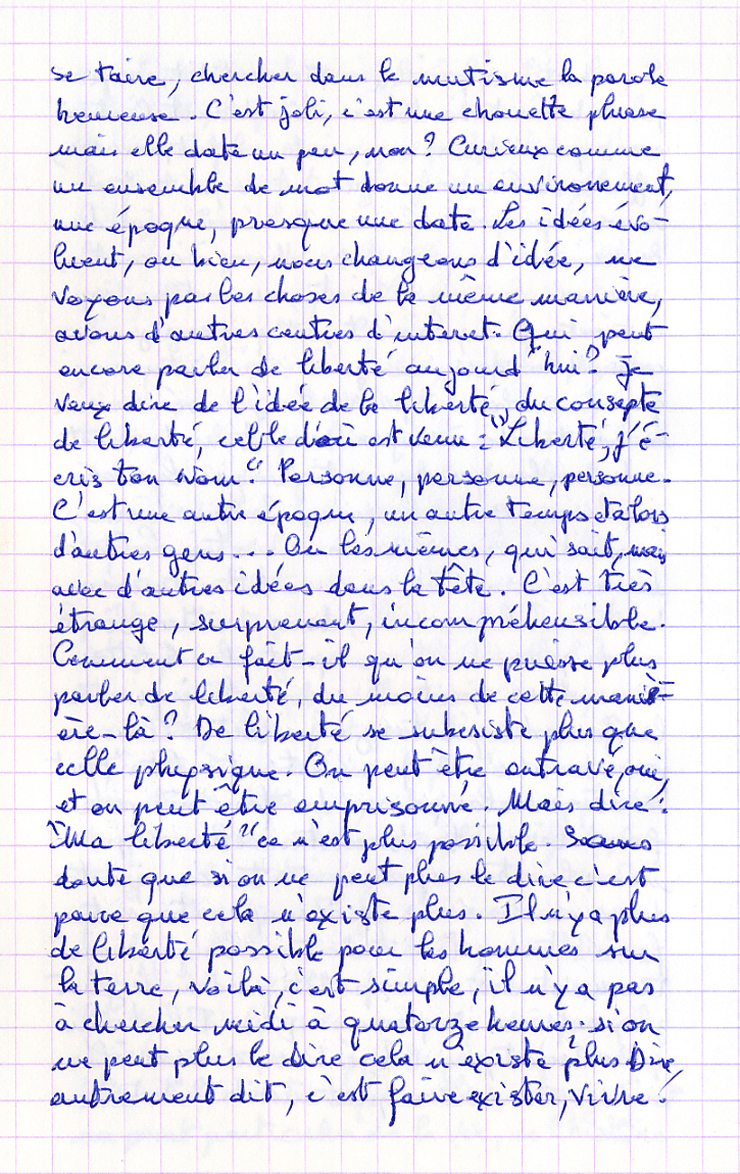 se taire, chercher dans le mutisme la parole
heureuse. C'est joli, c'est une chouette phrase
mais elle date un peu, non? Curieux comme
un ensemble de mot donne un environement,
une époque, presque une date. Les idées évo-
luent, ou bien, nous changeons d'idée, ne
voyons pas les choses de la même manière,
avons d'autres centres d'interet. Qui peut
encore parler de liberté aujourd'hui? Je
veux dire de l'idée de la liberté, du consepte
de liberté, celle d'où est venu : "Liberté, j'é-
cris ton nom". Personne, personne, personne.
C'est une autre époque, un autre temps et alors
d'autres gens... Ou les mêmes, qui sait, mais
avec d'autres idées dans la tête. C'est très
étrange, surprenant, incompréhensible.
Comment ce fait-il qu'on ne puisse plus
parler de liberté, du moins de cette mani-
ère-là? De liberté se subsiste plus que
celle physique. On peut être entravé, oui,
et on peut être emprisonné. Mais dire :
"Ma liberté" ce n'est plus possible. Sans
doute que si on ne peut plus le dire c'est
parce que cela n'existe plus. Il n'y a plus
de liberté possible pour les hommes sur
la terre, voilà, c'est simple, il n'y a pas
à chercher midi à quatorze heures : si on
ne peut plus le dire cela n'existe plus. Dire,
autrement dit, c'est faire exister, vivre.